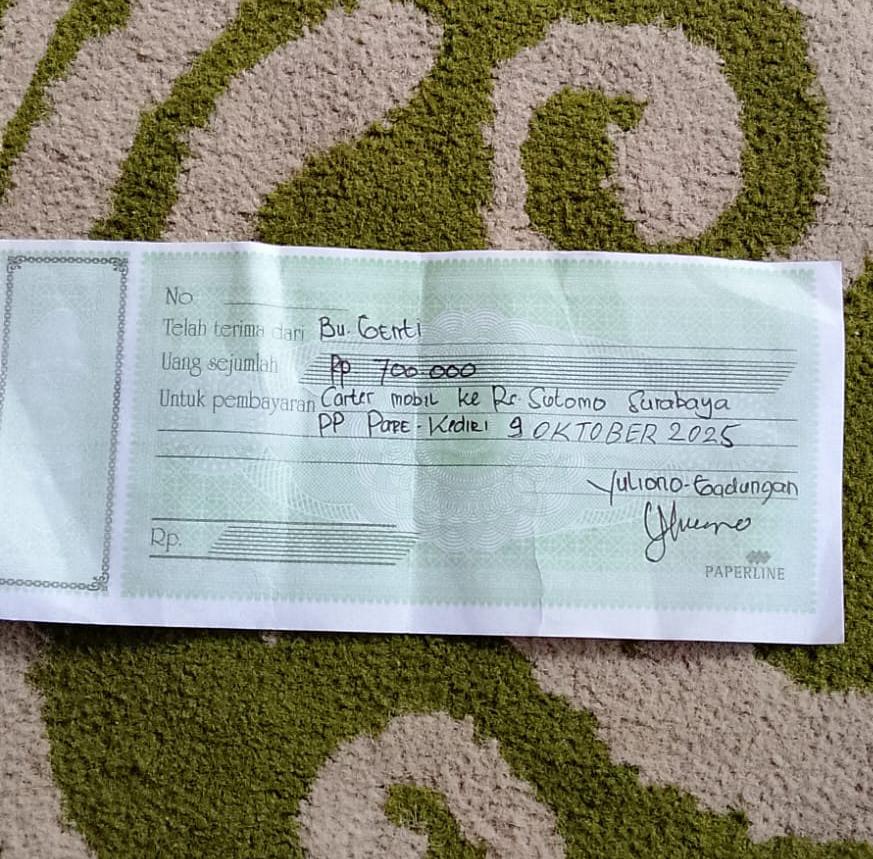 No
Telah terima dari Bu. Genti
Uang sejumlah Rp 700.000
Untuk pembayaran Carter mobil ke Rs. Sutomo Surabaya
PP PARE - Kediri 9 OKTOBER 2025
Yuliono-Gadungan
Rp.
PAPERLINE